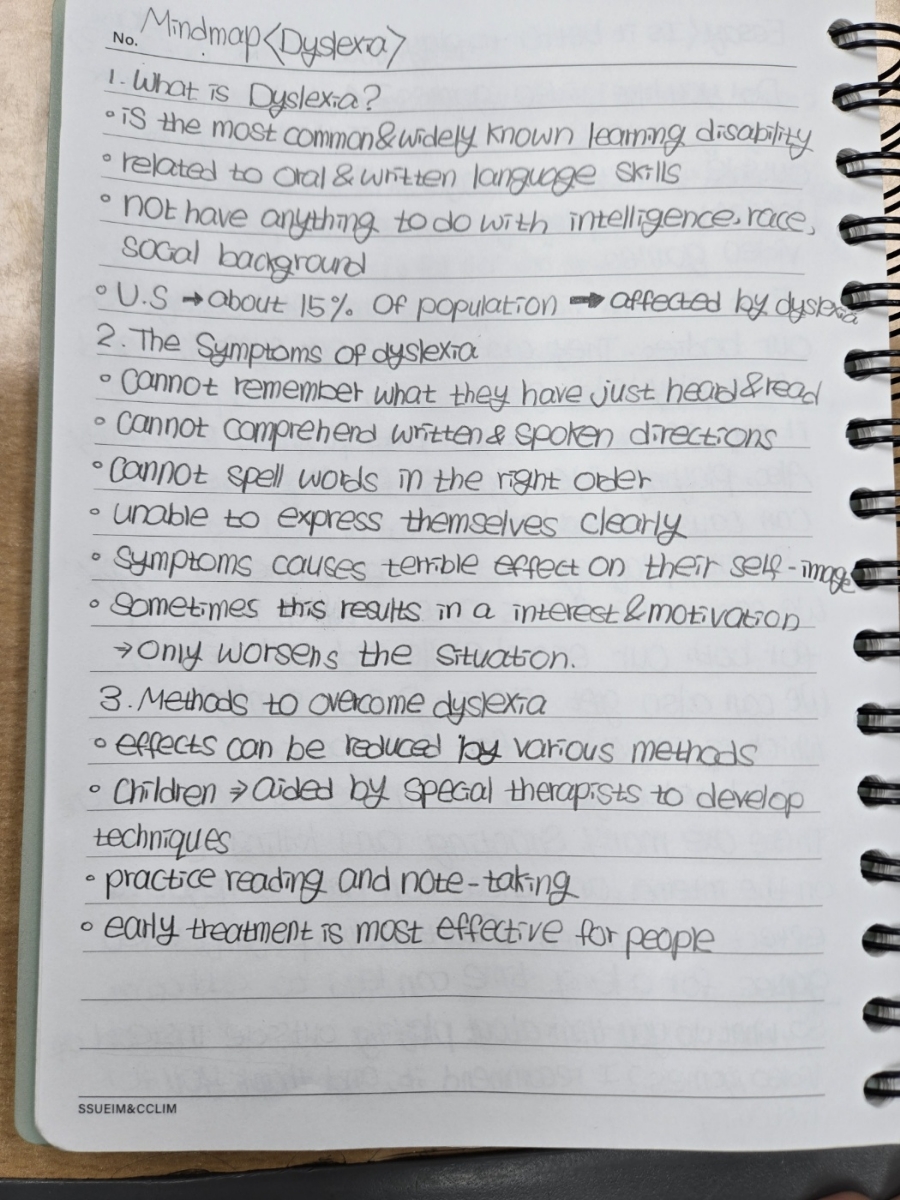 No. Mindmap<Dyslexia>
1. What is Dyslexia?
◦ is the most common & widely known learning disability
◦ related to oral & written language skills
◦ not have anything to do with intelligence, race,
social background
◦ U.S ➡ about 15% of population ➡ affected by dyslexia
2. The Symptoms of dyslexia
◦ cannot remember what they have just heard & read
◦ cannot comprehend written & spoken directions
◦ cannot spell words in the right order
◦ unable to express themselves clearly
◦ symptoms causes terrible effect on their self-image
◦ sometimes this results in a interest & motivation
→ Only worsens the situation.
3. Methods to overcome dyslexia
◦ effects can be reduced by various methods
◦ Children → aided by special therapists to develop
techniques
◦ practice reading and note-taking
◦ early treatment is most effective for people
SSUEIM&CCLIM